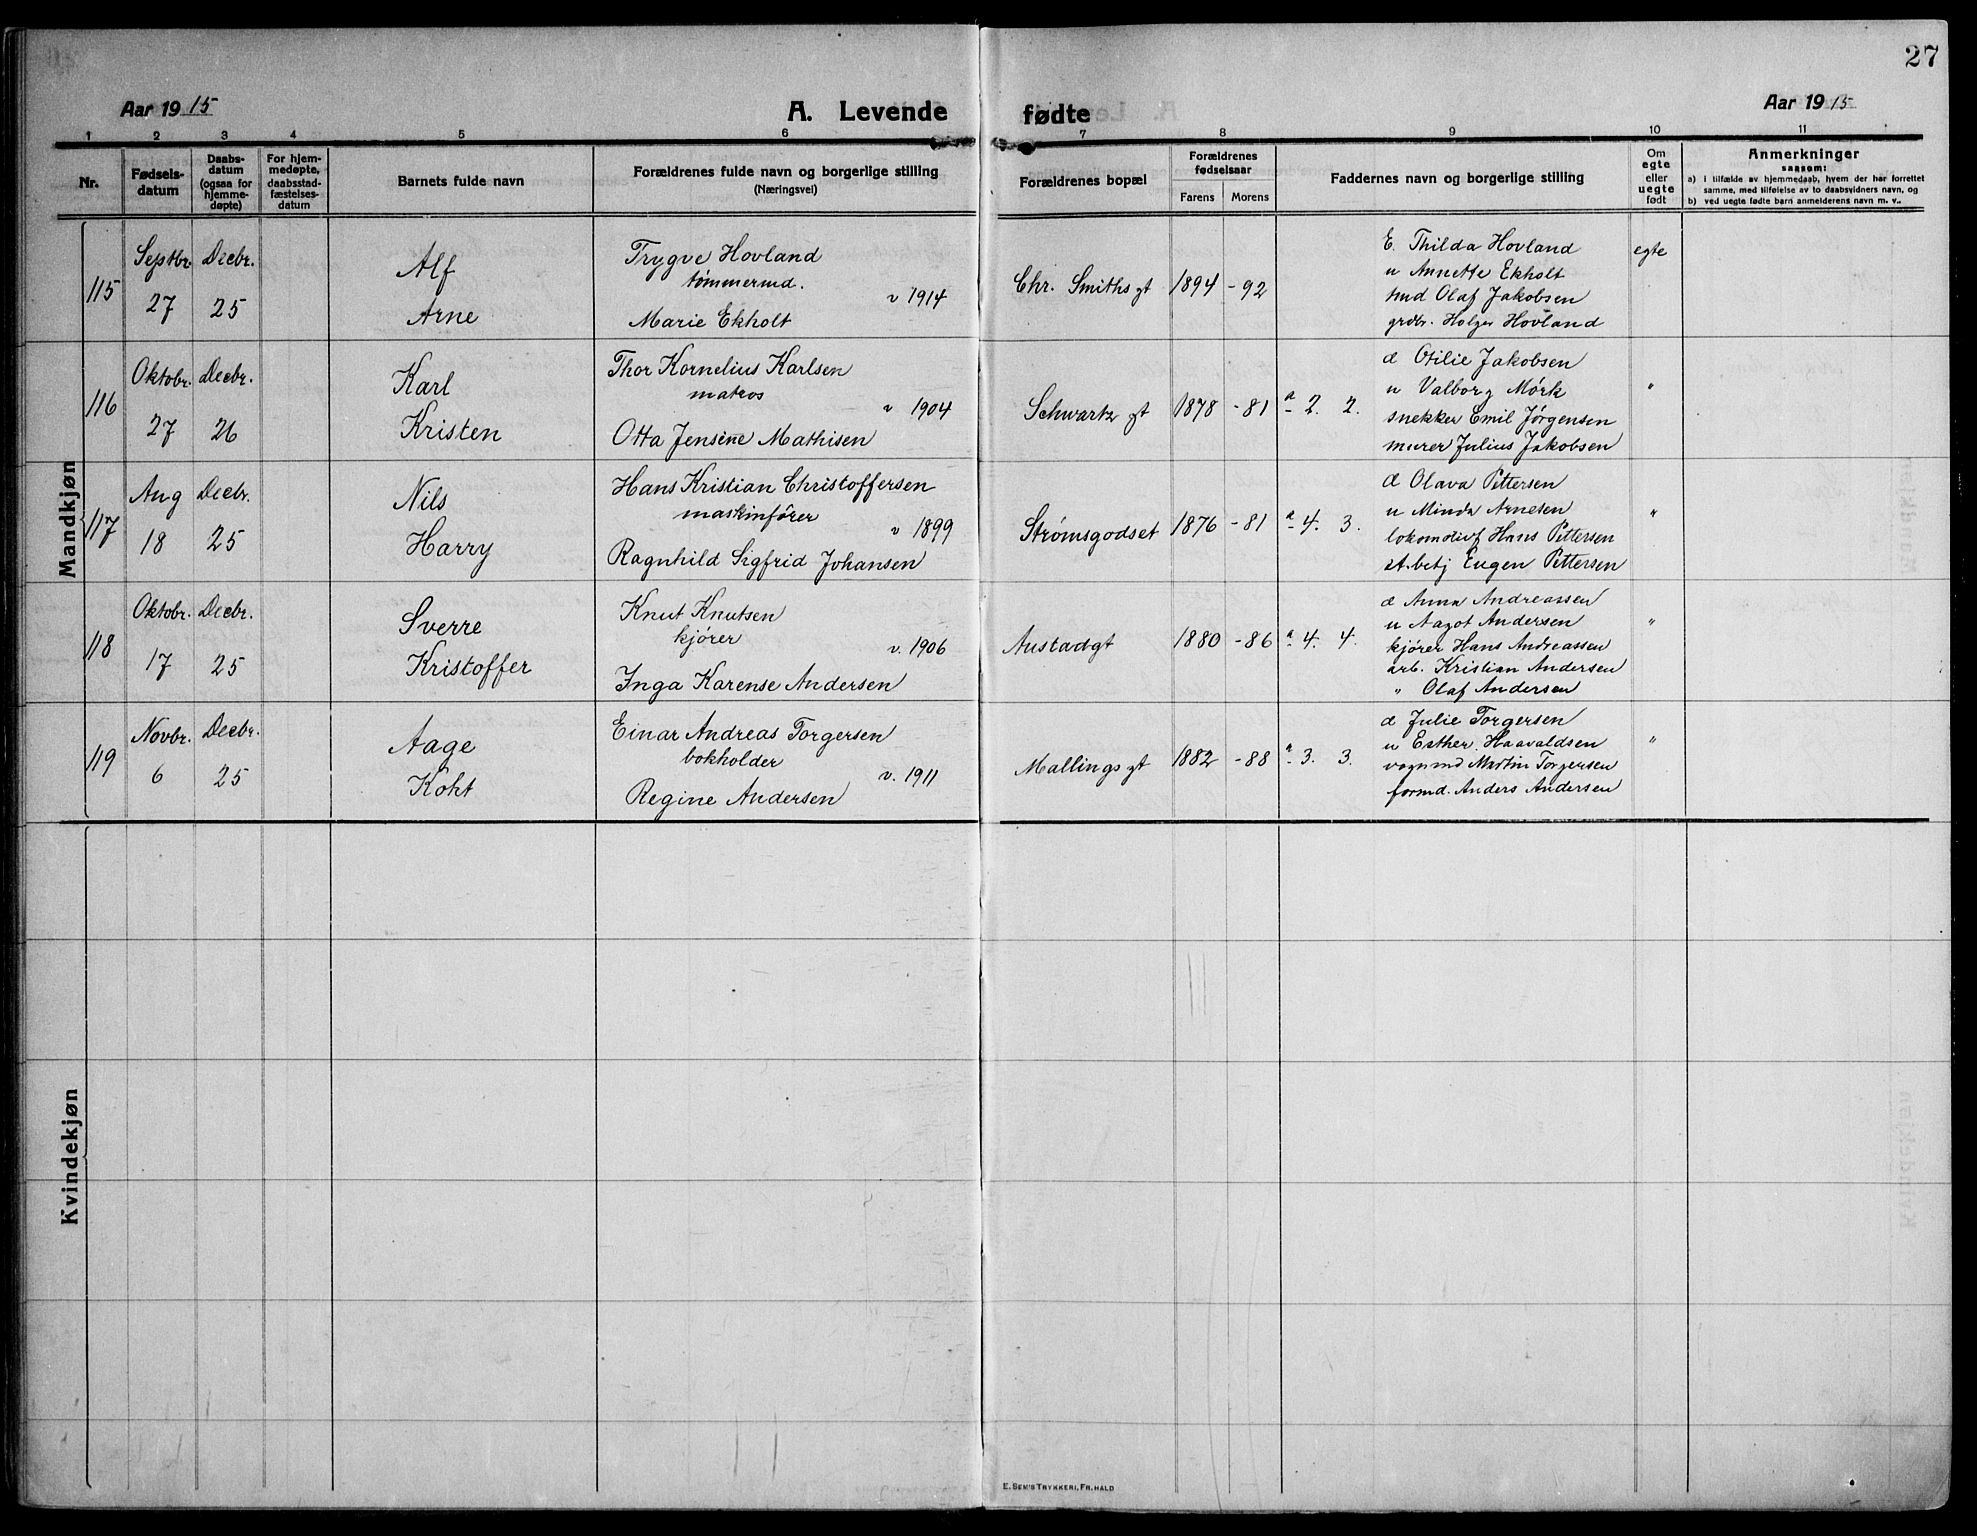 27
Aar 1915 A. Levende fødte Aar 1915
1 2 3 4 5 6 7 8 9 10 11
Nr.
Fødsels-
datum
Daabs-
datum
(ogsaa for
hjemme-
døpte)
For hjem-
medøpte,
daabsstad-
fæstelses-
datum
Barnets fulde navn
Forældrenes fulde navn og borgerlige stilling
(Næringsvei)
Forældrenes bopæl
Forældrenes
fødselsaar
Farens Morens
Faddernes navn og borgerlige stilling
Om
egte
eller
uegte
født
Anmerkninger
sansom:
a) i tilfælde av hjemmedaab, hvem der har forrettet
samme, med tilføielse av to daabsvidners navn, og
b) ved uegte fødte barn anmelderens navn m. v..
Mandkjøn
115
Septbr. Decbr.
27 25
Alf
Arne
Trygve Hovland
tømmermd.
v 1914
Marie Ekholt
Chr. Smiths gt
1894 - 92
E. Thilda Hovland
u Annette Ekholt
tmd Olaf Jakobsen
grdbr. Holger Hovland
egte
116
Oktobr. Decbr.
27 26
Karl
Kristen
Thor Kornelius Karlsen
matros
v 1904
Otta Jensine Mathisen
Schwartz gt
1878 - 81
a 2. 2.
d Otilie Jakobsen
u Valborg Mørk
snekker Emil Jørgensen
murer Julius Jakobsen
"
117
Aug Decbr.
18 25
Nils
Harry
Hans Kristian Christoffersen
maskinfører
v 1899
Ragnhild Sigfrid Johansen
Strømsgodset
1876 - 81
a 4. 3.
d Olava Pettersen
u Minda Arnesen
lokomotivf Hans Pettersen
st.betj Eugen Pettersen
"
118
Oktobr. Decbr.
17 25
Sverre
Kristoffer
Knut Knutsen
kjører
v. 1906
Inga Karense Andersen
Austadgt
1880 - 86
a 4. 4.
d Anna Andreassen
u Aagot Andersen
kjører Hans Andreassen
arb. Kristian Andersen
" Olaf Andersen
"
119
Novbr. Decbr.
6 25
Aage
Koht
Einar Andreas Torgersen
bokholder
v. 1911
Regine Andersen
Mallings gt
1882 - 88
a 3. 3.
d Julie Torgersen
u Esther Haavaldsen
vognmd Martin Torgersen
formd. Anders Andersen
"
Kvindekjøn
E. Sem's Trykkeri, Fr.hald